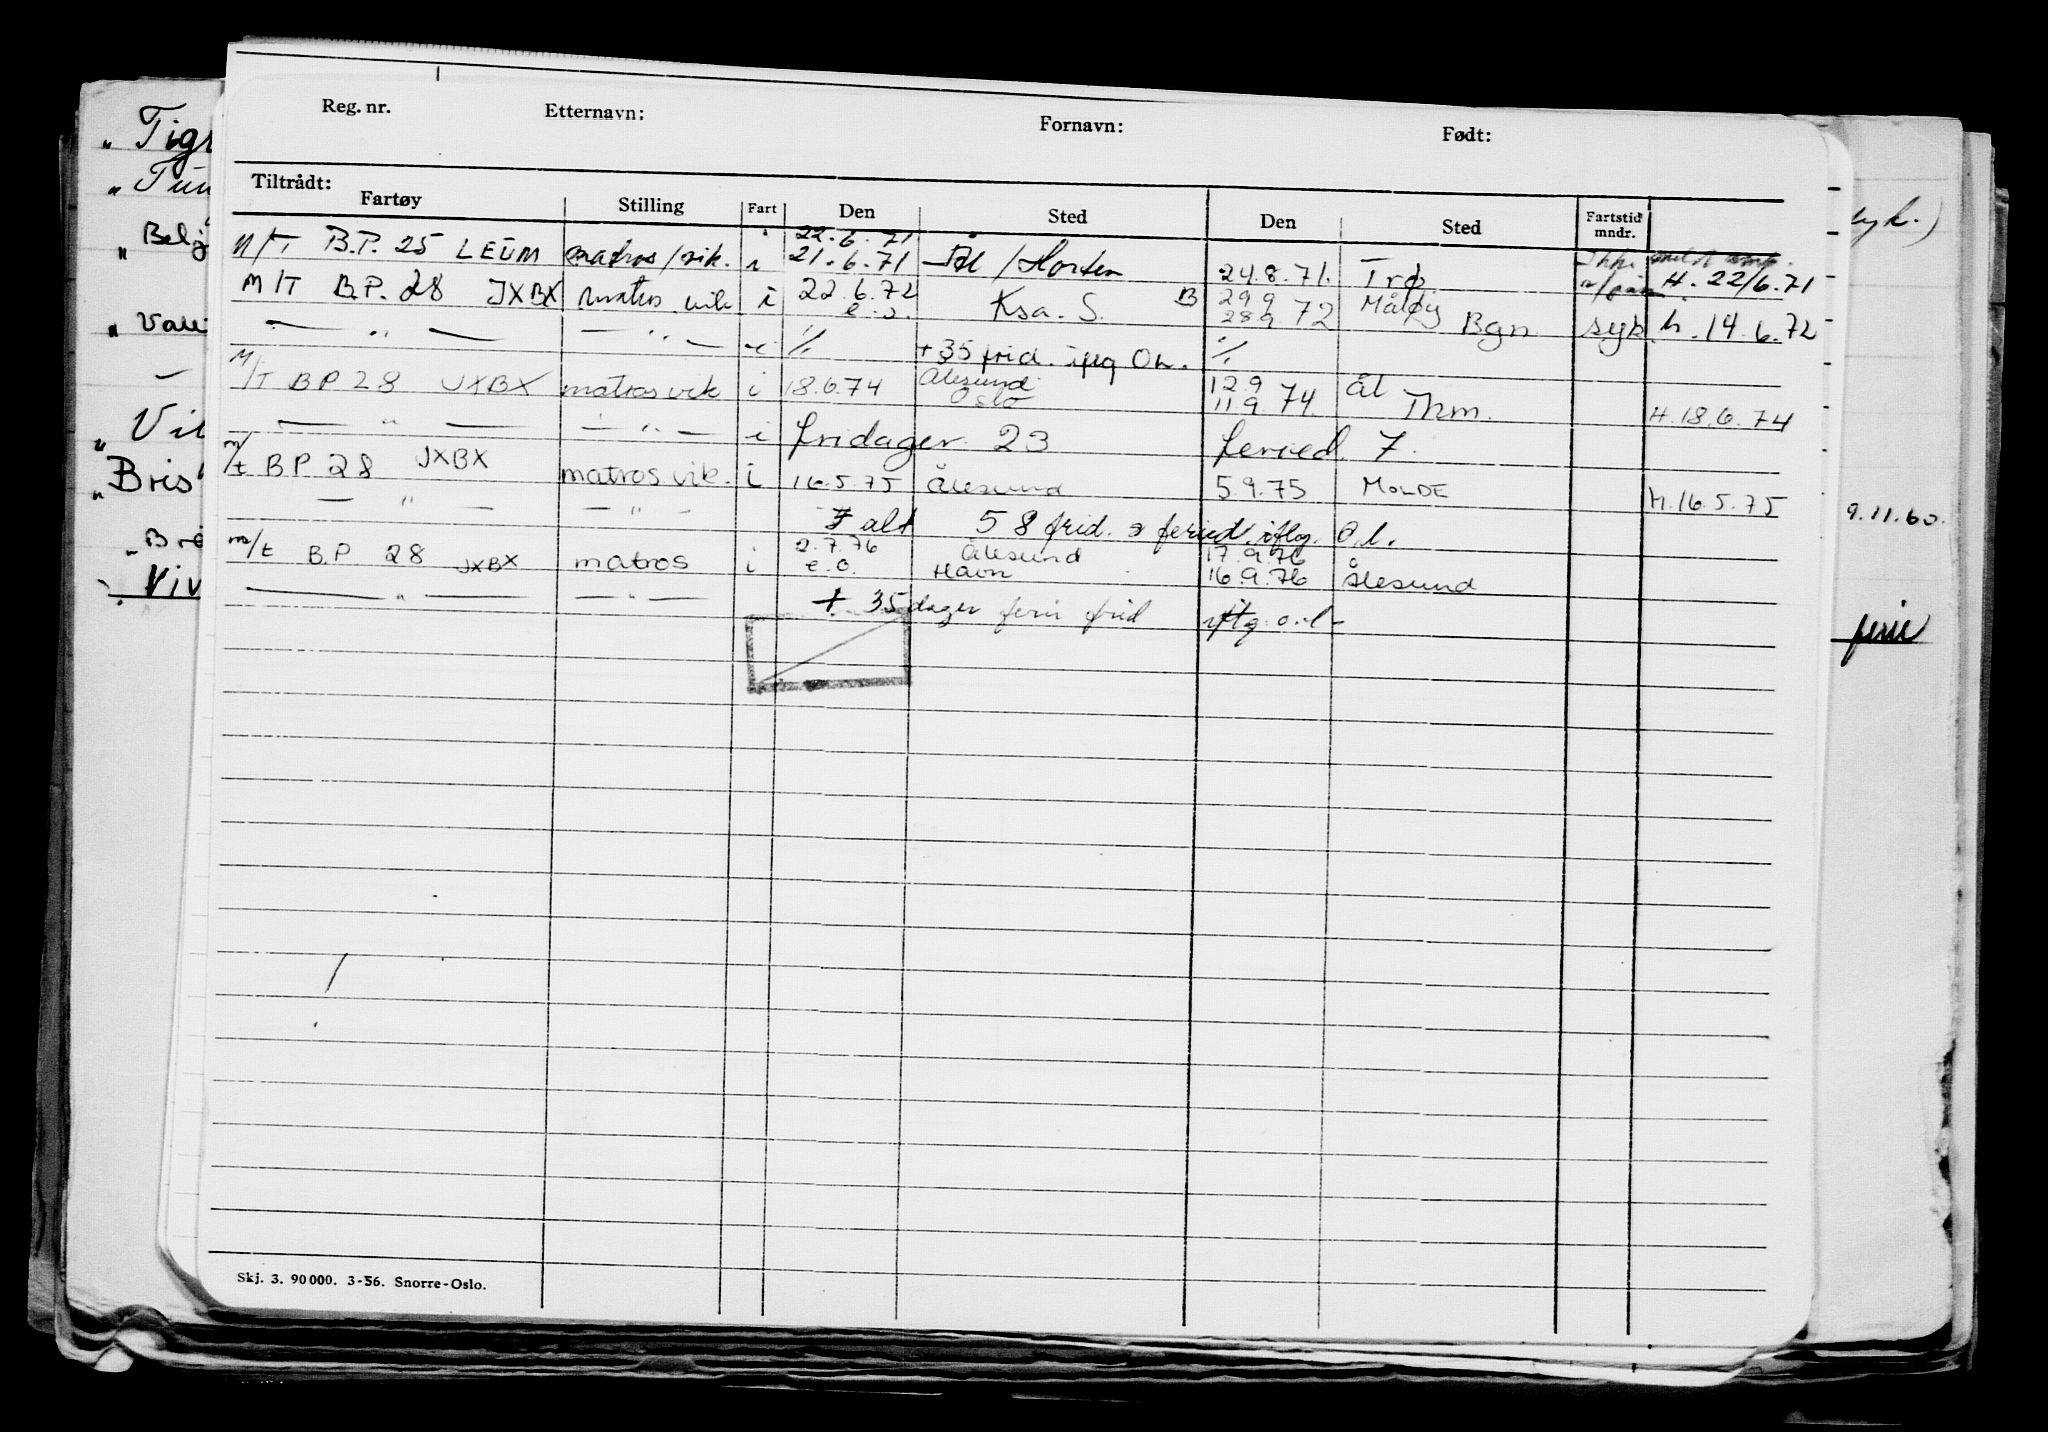 Reg. nr. Etternavn: Fornavn: Født:
Tiltrådt:
Fartøy Stilling Fart Den Sted Den Sted Fartstid mndr.
M/T B.P. 25 LEUM matros/vik. i 22.6.71 21.6.71 Ål / Horten 24.8.71. Trø H. 22/6.71
M/T B.P. 28 JXBX matros vik i 22.6.72 e.o. Ksa. S. B 29 9 28 9 72 Måløy Bgn syk. h. 14.6.72
— " — — " — i % + 35 frid. iflg Ov. %
M/T B P 28 JXBX matros vik i 18.6.74 Ålesund Oslo 12.9 11.9.74 Ål Thm. H.18.6.74
— " — — " — i fridager 23 feried. 7.
m/t B P 28 JXBX matros vik. i 16.5.75 Ålesund 5.9.75 MOLDE h.16.5.75
— " — " — I alt 58 frid. & feried. iflg. o.l.
m/t B.P 28 JXBX matros i 2.7.76 e.o. Ålesund Havn 17.9.76 16.9.76 Ålesund
— " — — " — + 35 dager ferie frid iflg. o.l-
Skj. 3. 90 000. 3-56. Snorre-Oslo.
" Tig
" Tun
" Bel
" Vall
—
" Vil
" Bris
" Bre
" Viv
syk.)
9.11.60.
ferie